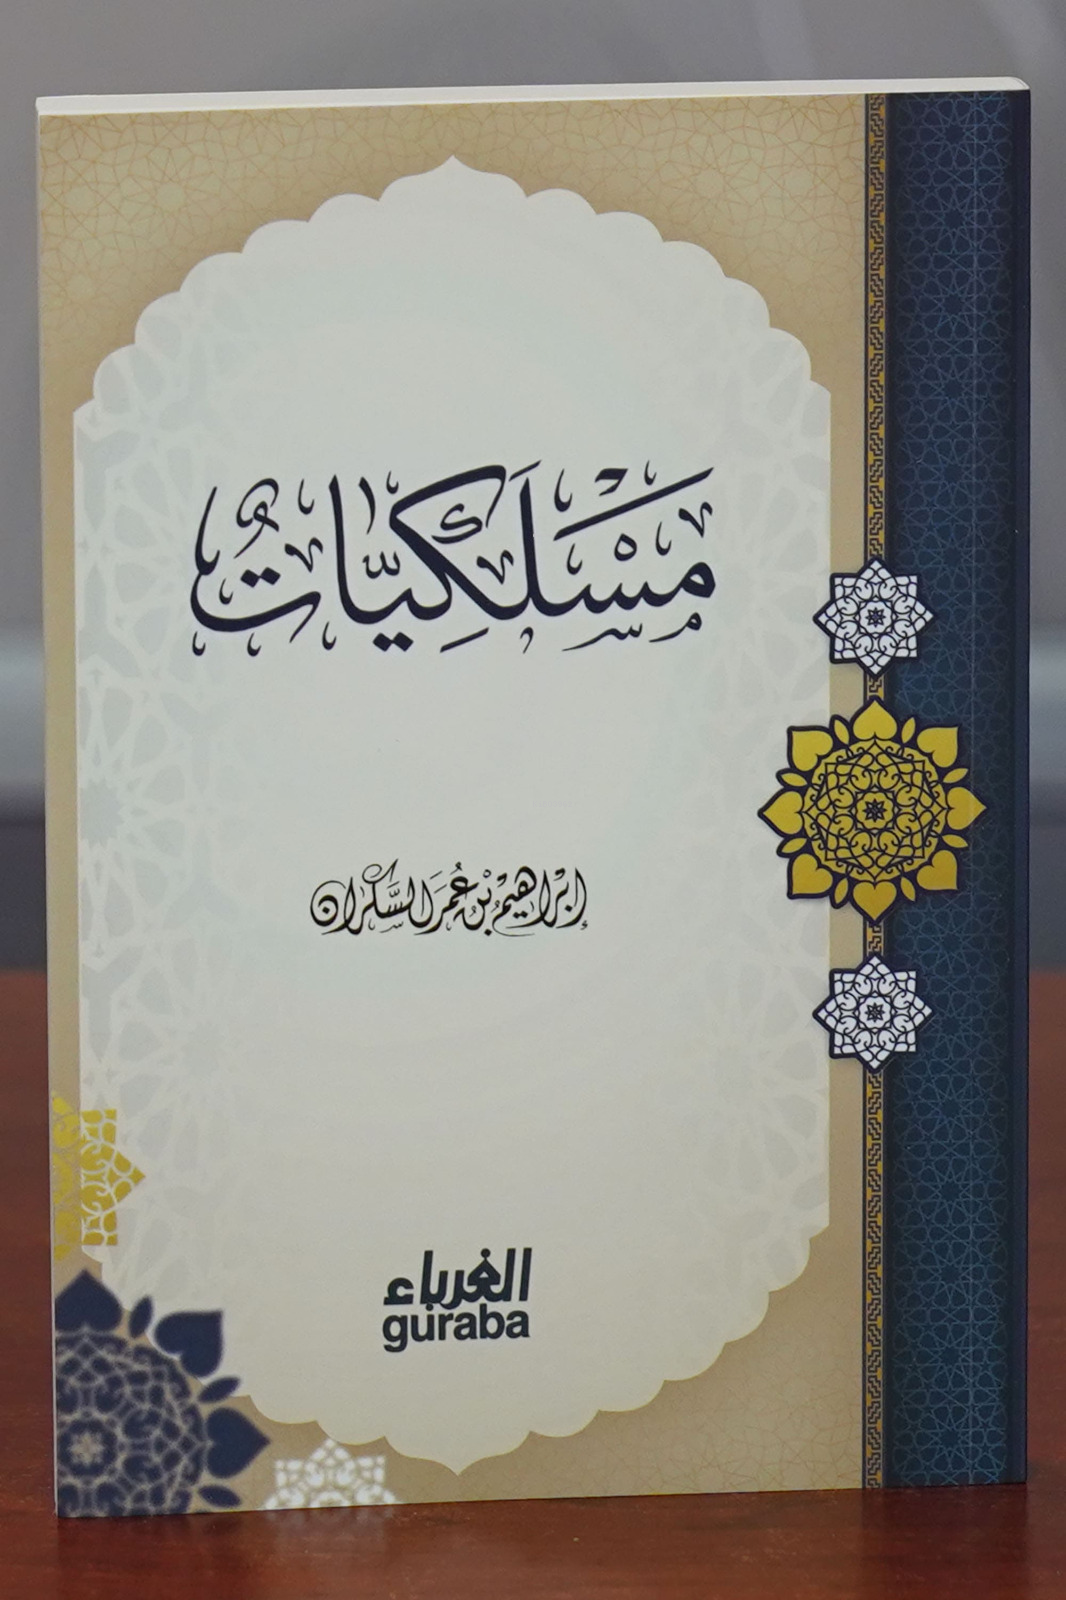 مَسْلَكِيَّاتٌ
إبْرَاهِيْمُ بْنُ عُمَرَ السَّكْرَان
الغرباء
guraba